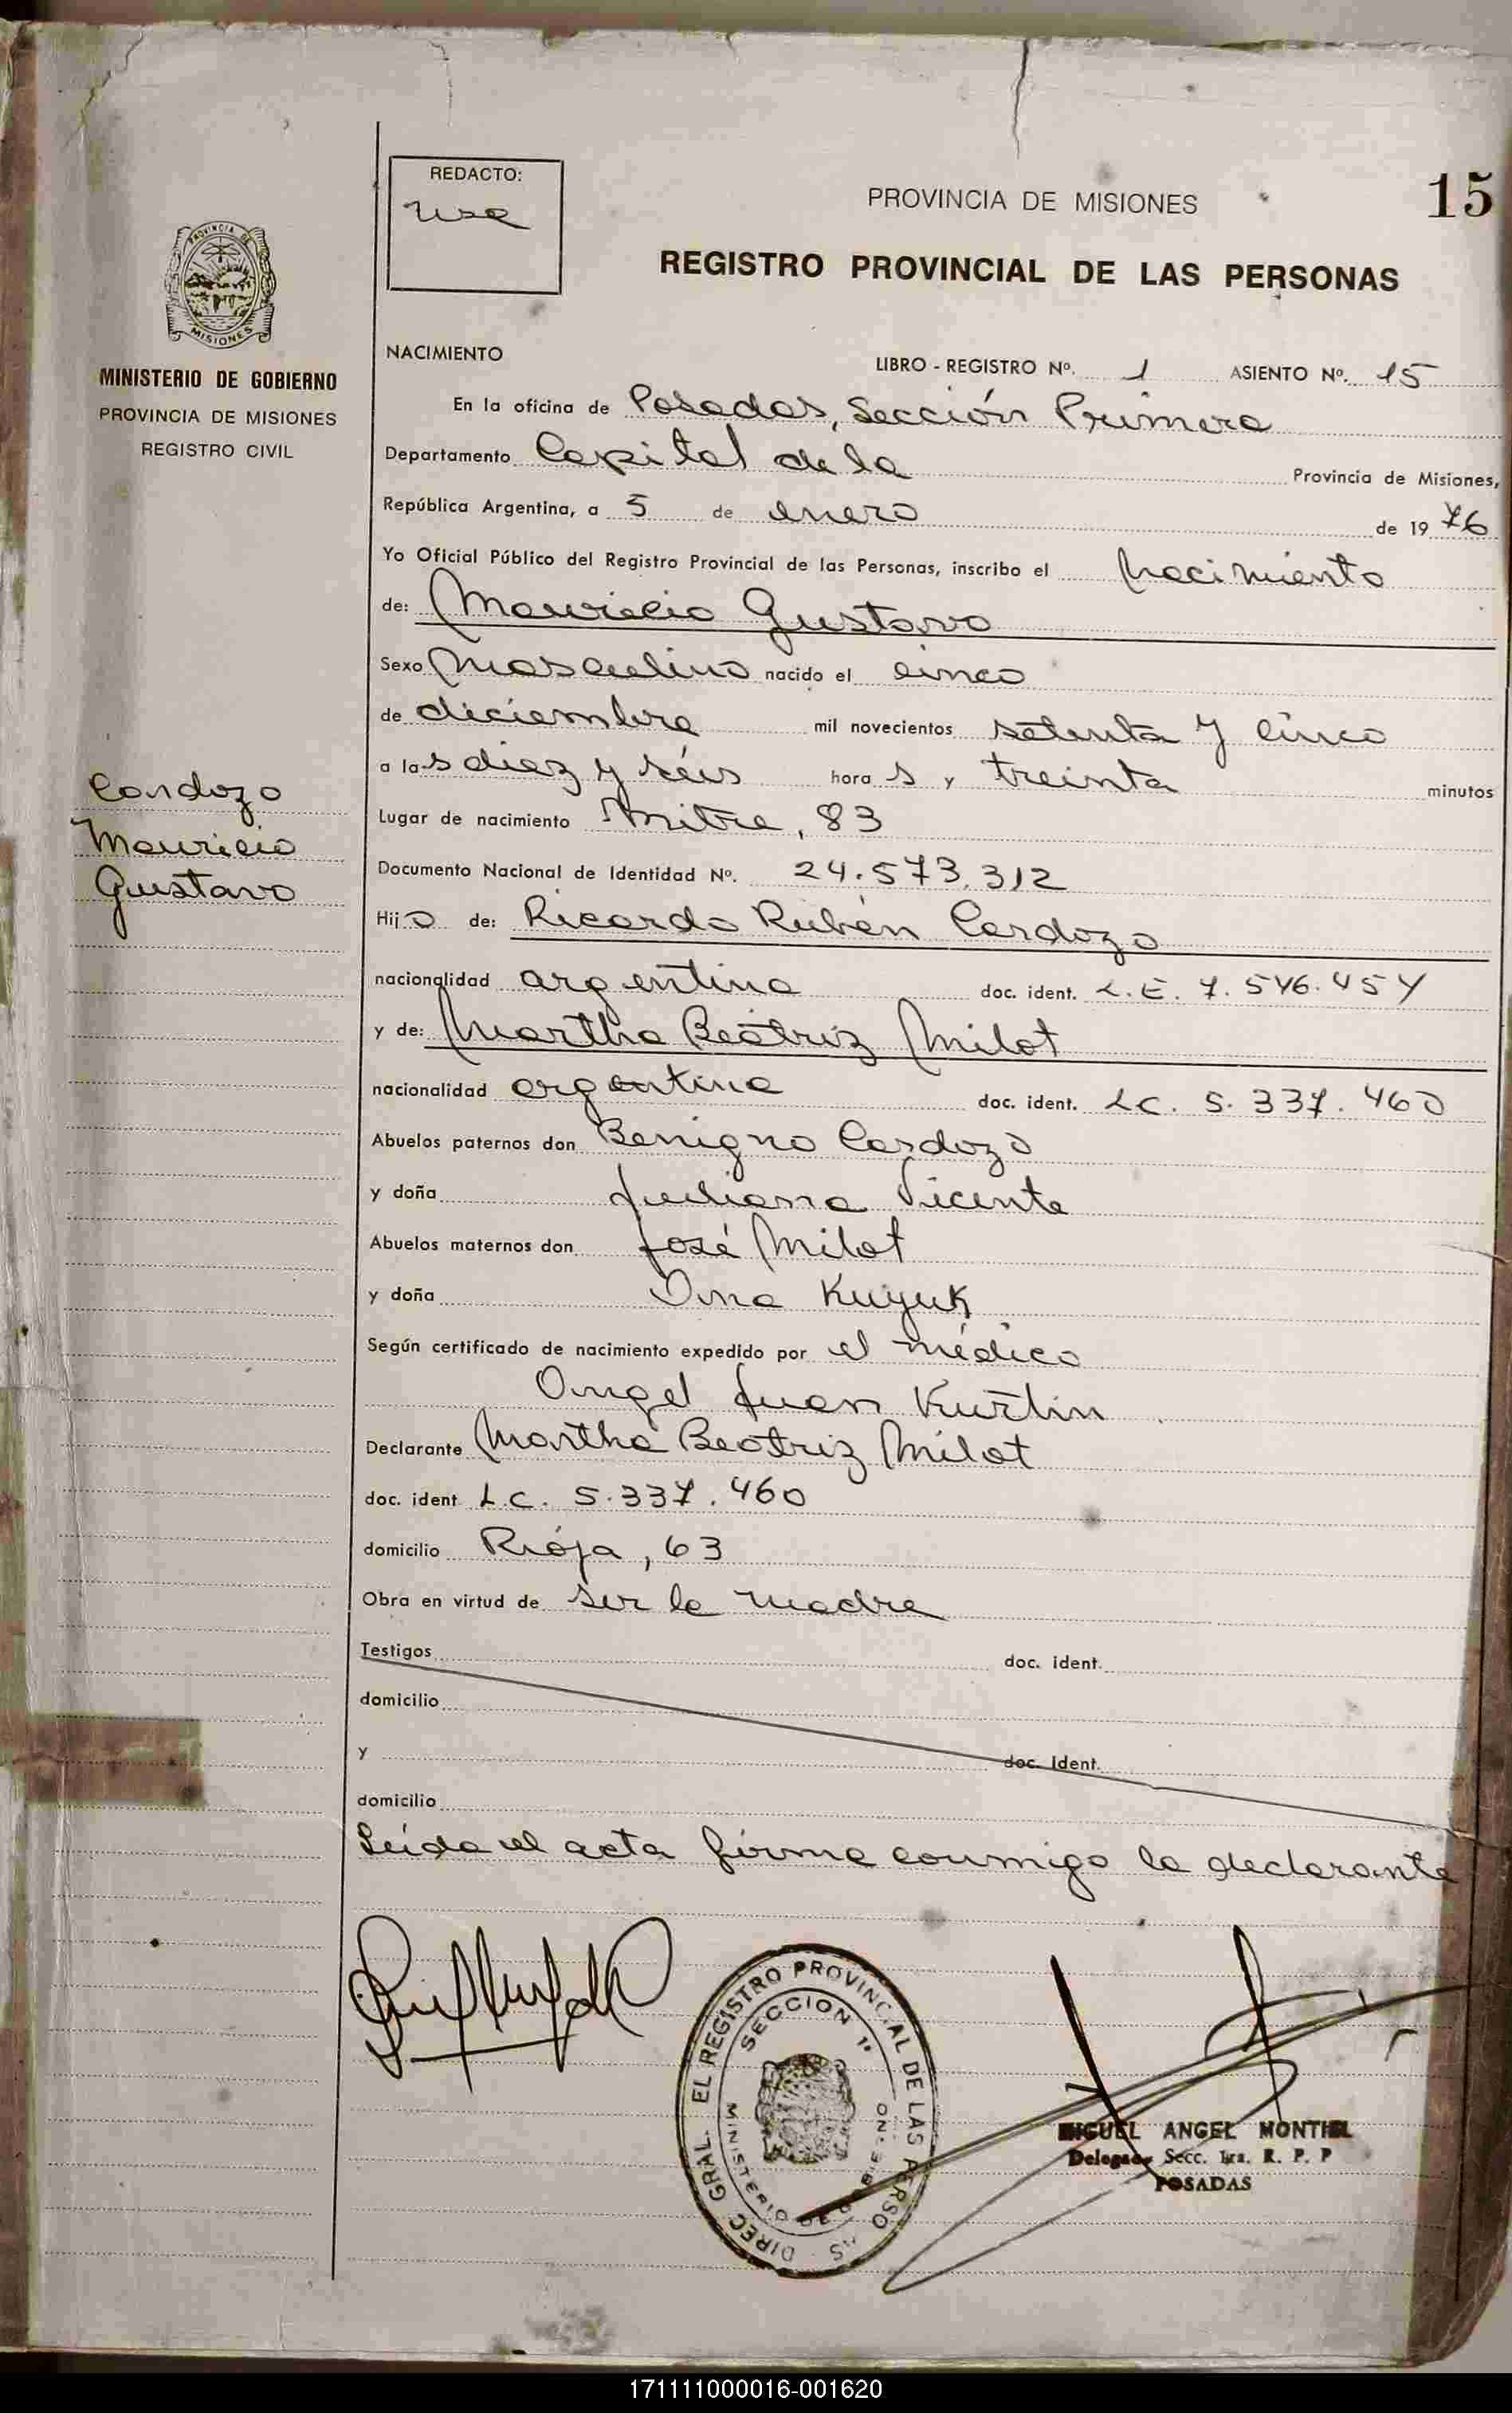 REDACTO:
PROVINCIA DE MISIONES
15
REGISTRO PROVINCIAL DE LAS PERSONAS
PROVINCIA DE
MISIONES
MINISTERIO DE GOBIERNO
PROVINCIA DE MISIONES
REGISTRO CIVIL
NACIMIENTO
LIBRO - REGISTRO Nº. 1 ASIENTO Nº. 15
En la oficina de Posadas, Sección Primera
Departamento Capital de la Provincia de Misiones,
República Argentina, a 5 de enero de 1976
Yo Oficial Público del Registro Provincial de las Personas, inscribo el nacimiento
de: Mauricio Gustavo
Sexo masculino nacido el cinco
de diciembre mil novecientos setenta y cinco
a las diez y séis horas y treinta minutos
Cardozo
Mauricio
Gustavo
Lugar de nacimiento Mitre, 83
Documento Nacional de Identidad Nº. 24.573.312
Hijo de: Ricardo Rubén Cardozo
nacionalidad argentina doc. ident. L.E. 7.546.454
y de: Martha Beatriz Milot
nacionalidad argentina doc. ident. LC. 5.337.460
Abuelos paternos don Benigno Cardozo
y doña Juliana Vicente
Abuelos maternos don José Milot
y doña Ana Kuyuk
Según certificado de nacimiento expedido por el médico
Angel Juan Kurtin
Declarante Martha Beatriz Milot
doc. ident L.C. 5.337.460
domicilio Rioja, 63
Obra en virtud de ser la madre
Testigos doc. ident.
domicilio
y doc. ident.
domicilio
Leída el acta firma conmigo la declarante
DIREC. GRAL. EL REGISTRO PROVINCIAL DE LAS PERSONAS
SECCION 1ª
MINISTERIO DE GOBIERNO
MIGUEL ANGEL MONTIEL
Delegado Secc. 1ra. R. P. P
POSADAS
171111000016-001620